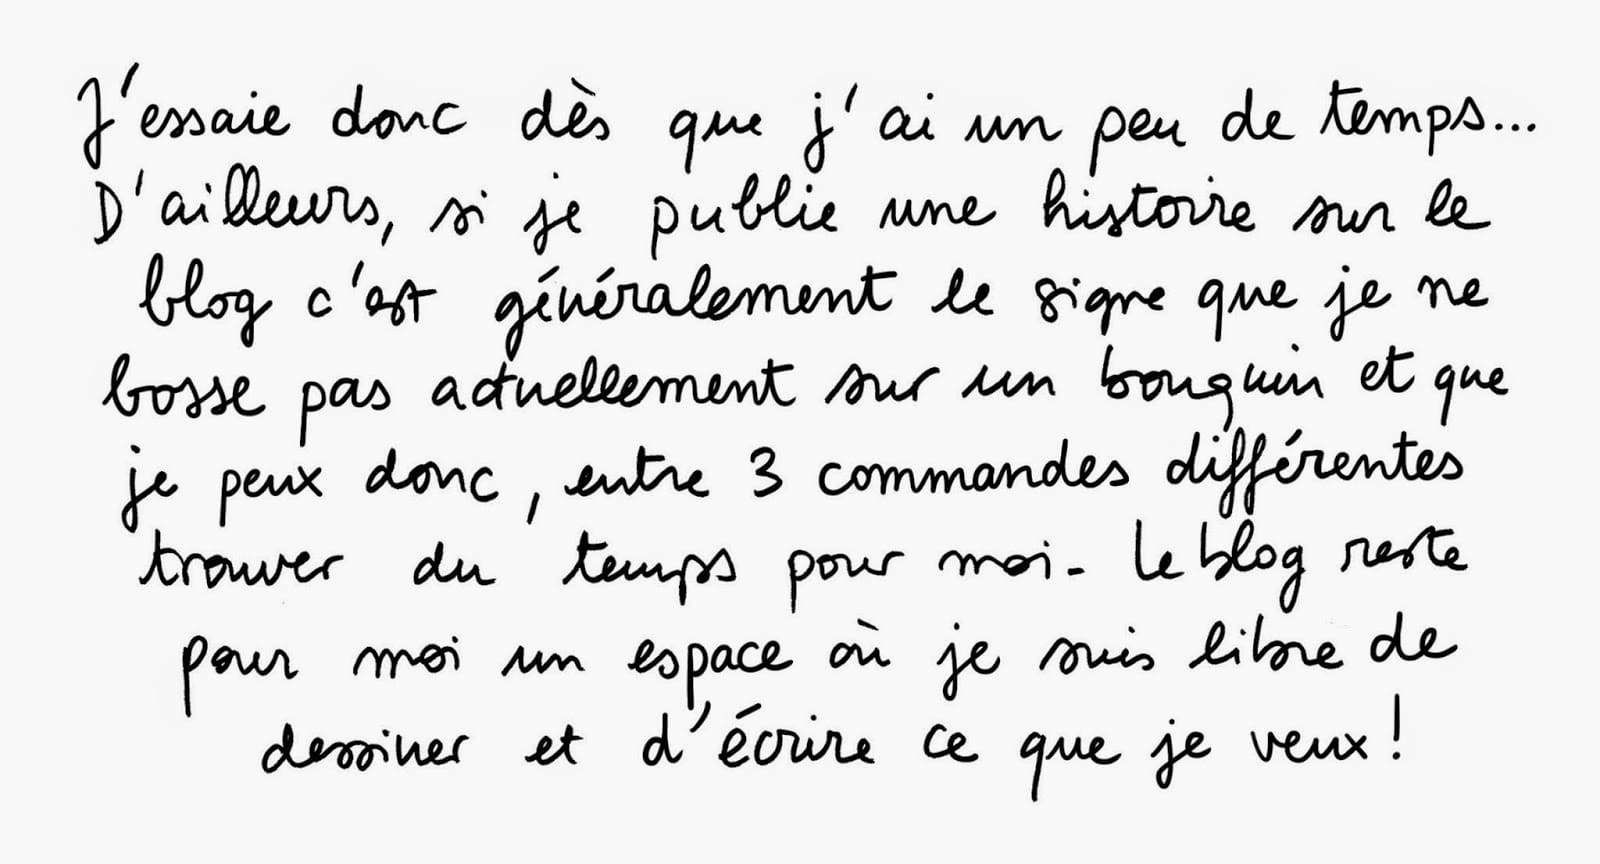 J'essaie donc dès que j'ai un peu de temps...
D'ailleurs, si je publie une histoire sur le
blog c'est généralement le signe que je ne
bosse pas actuellement sur un bouquin et que
je peux donc, entre 3 commandes différentes
trouver du temps pour moi. Le blog reste
pour moi un espace où je suis libre de
dessiner et d'écrire ce que je veux!